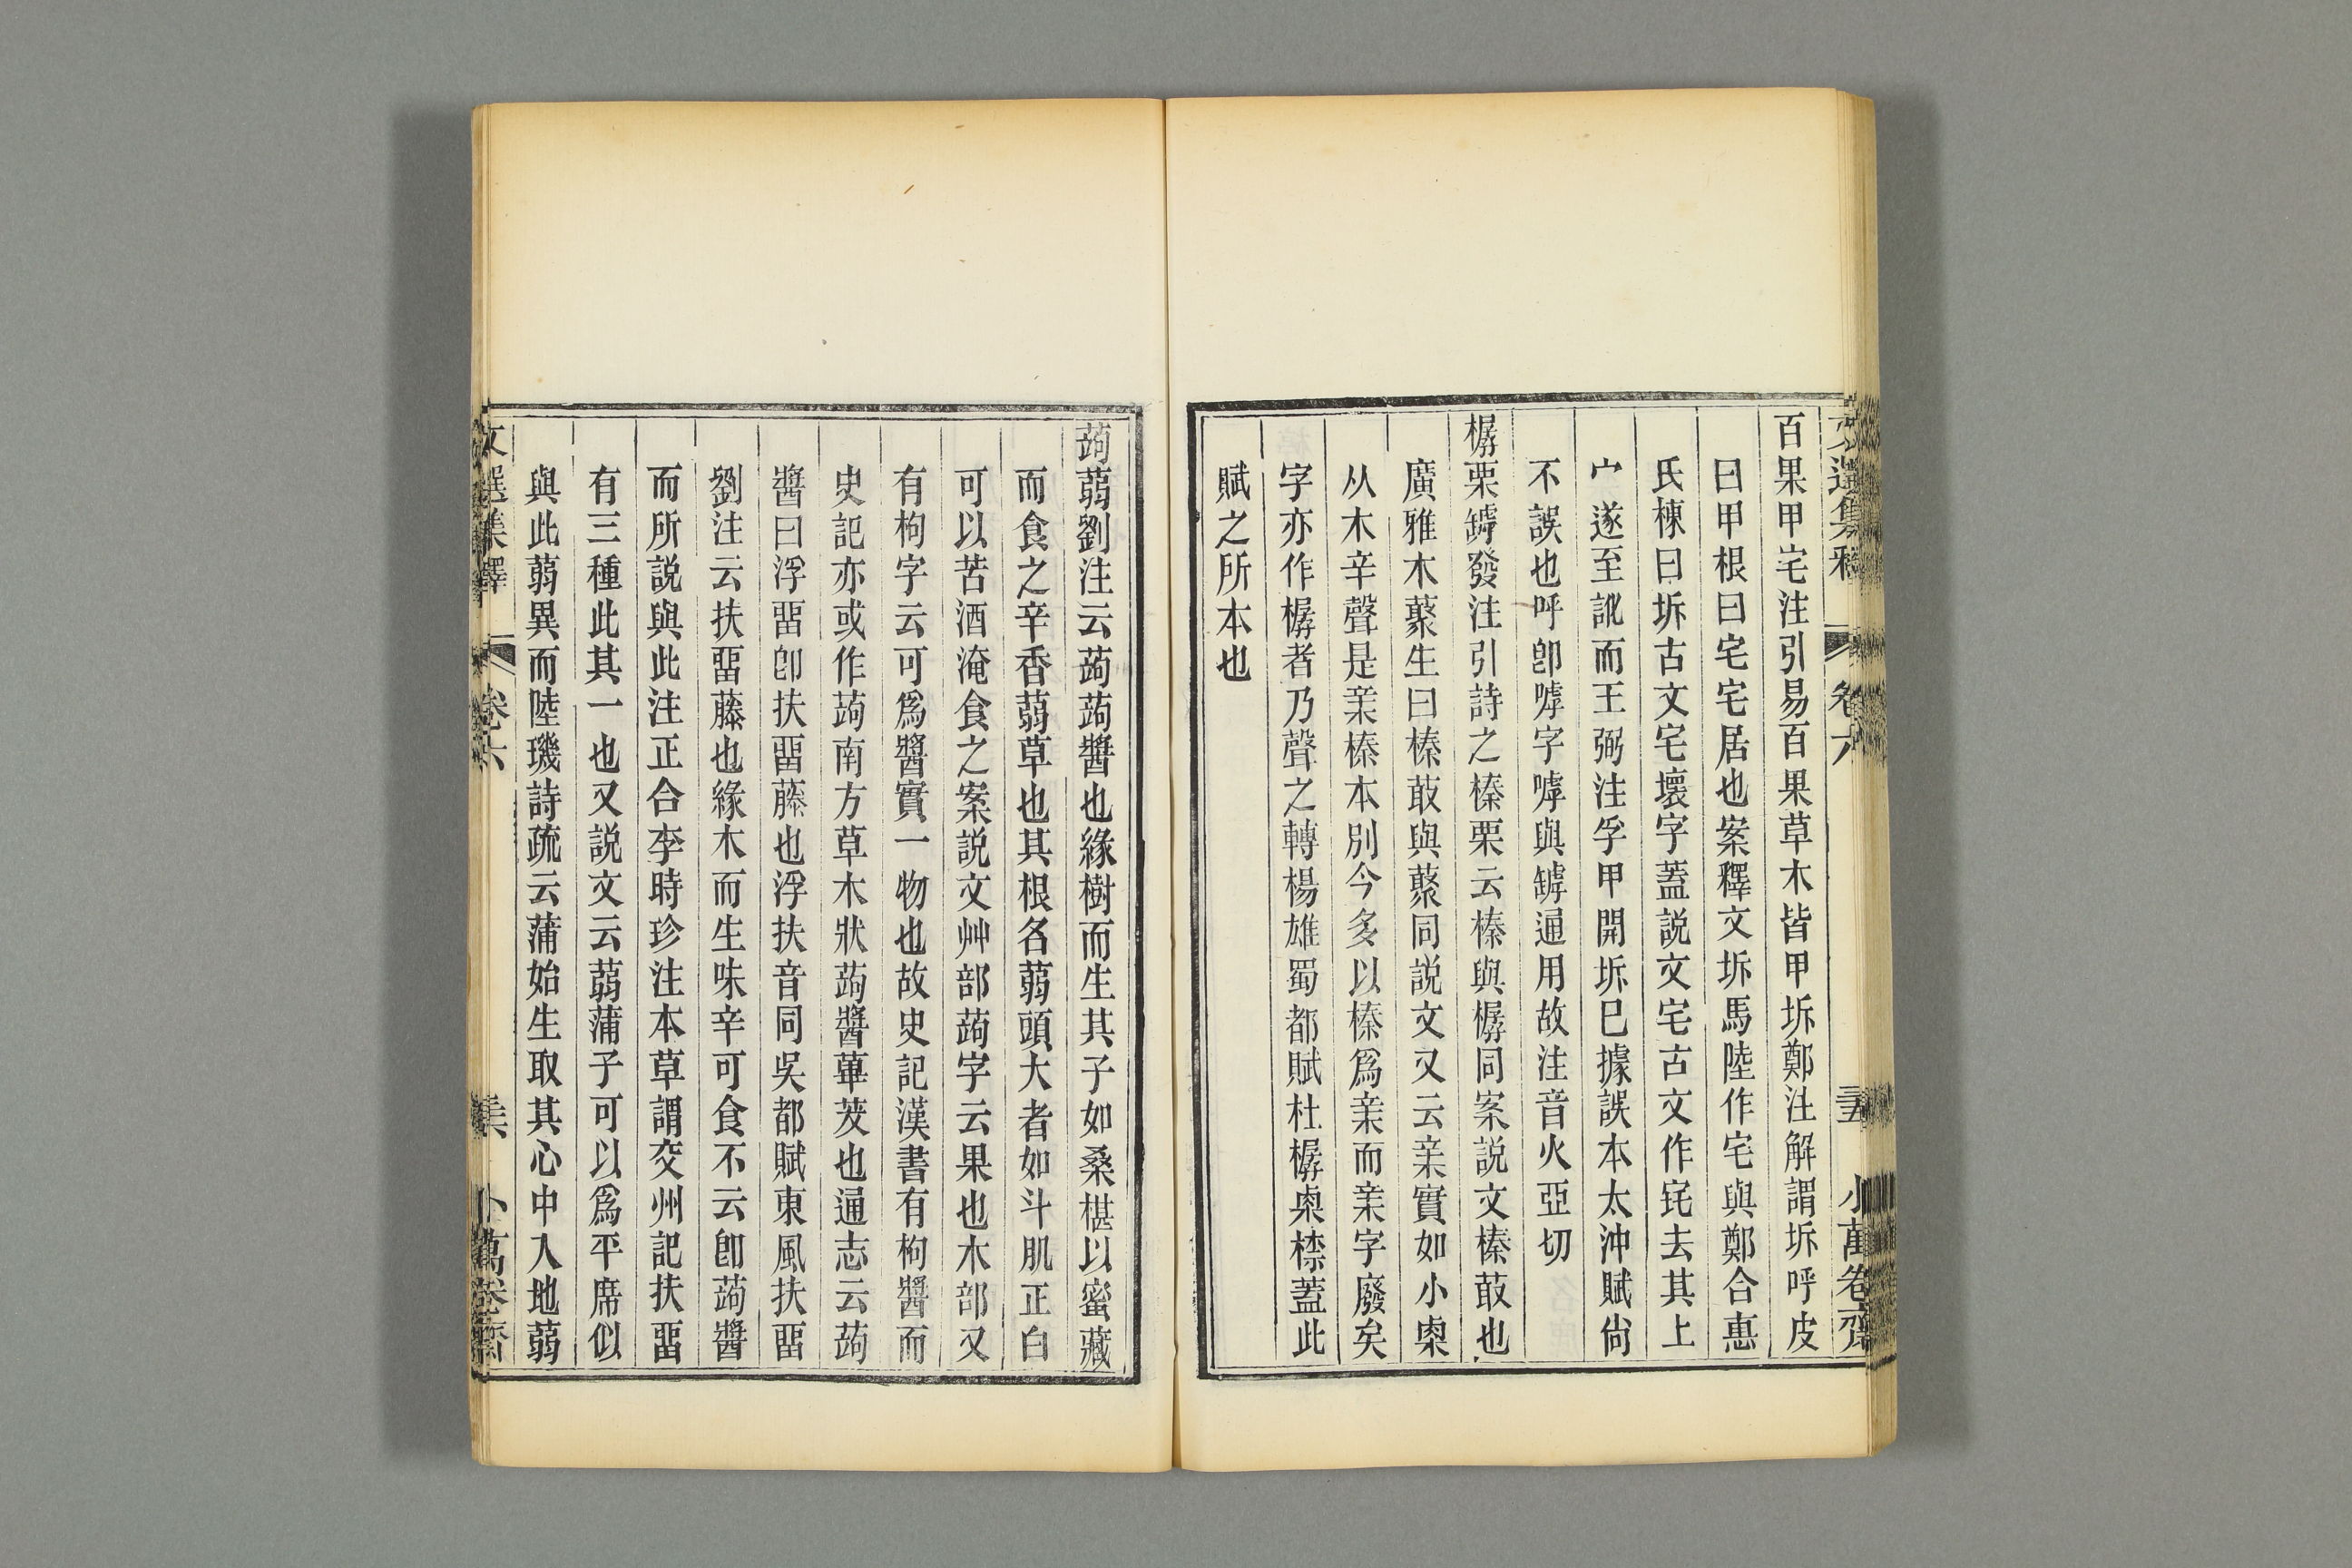 文選集釋 卷六 小萬卷齋
百果甲宅注引易百果草木皆甲坼鄭注解謂坼呼皮
曰甲根曰宅宅居也案釋文坼馬陸作宅與鄭合惠
氏棟曰坼古文宅壞字蓋説文宅古文作㡯去其上
宀遂至訛而王弼注孚甲開坼已據誤本太沖賦尙
不誤也呼卽嘑字嘑與罅通用故注音火亞切
樼栗罅發注引詩之榛栗云榛與樼同案説文榛菆也
廣雅木藂生曰榛菆與藂同説文又云亲實如小栗
从木辛聲是亲榛本別今多以榛爲亲而亲字廢矣
字亦作樼者乃聲之轉楊雄蜀都賦杜樼栗㮈蓋此
賦之所本也
蒟蒻劉注云蒟蒟醬也緣樹而生其子如桑椹以蜜藏
而食之辛香蒻草也其根名蒻頭大者如斗肌正白
可以苦酒淹食之案説文艸部蒟字云果也木部又
有枸字云可爲醬實一物也故史記漢書有枸醬而
史記亦或作蒟南方草木狀蒟醬蓽茇也通志云蒟
醬曰浮畱卽扶畱藤也浮扶音同吳都賦東風扶畱
劉注云扶畱藤也緣木而生味辛可食不云卽蒟醬
而所説與此注正合李時珍注本草謂交州記扶畱
有三種此其一也又説文云蒻蒲子可以爲平席似
與此蒻異而陸璣詩疏云蒲始生取其心中入地蒻
文選集釋 卷六 小萬卷齋